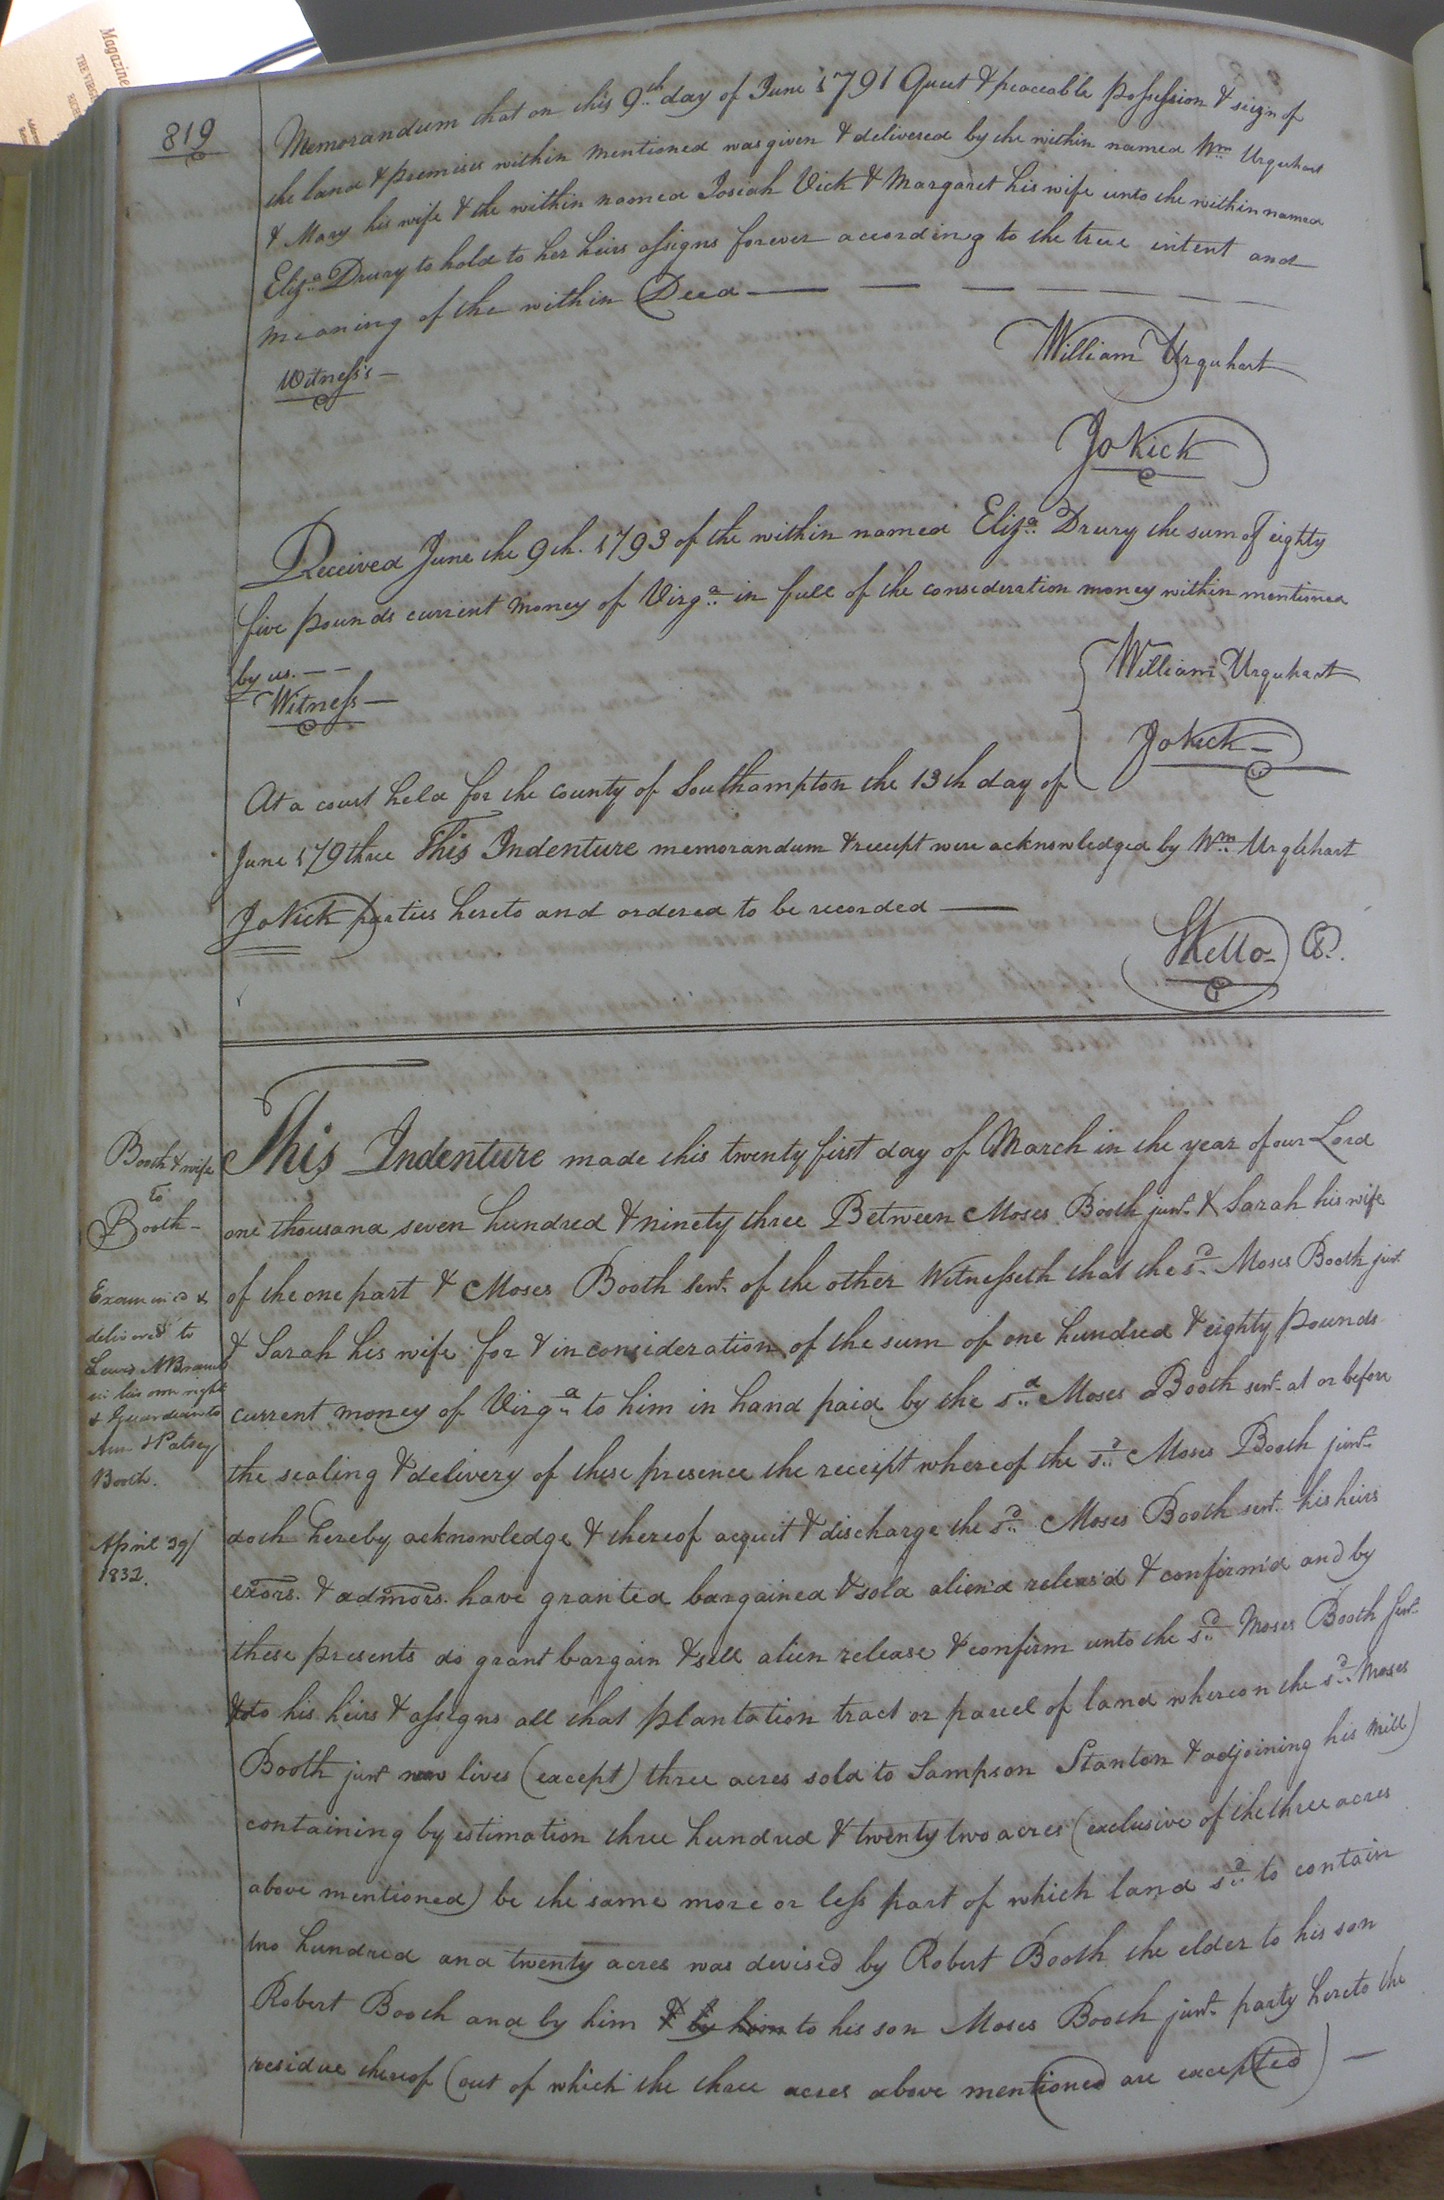 Magazine
819
Memorandum that on this 9th day of June 1791 Quiet & peaceable possession & seizn of
the land & premises within mentioned was given & delivered by the within named Wm Urquhart
& Mary his wife & the within named Josiah Vick & Margaret his wife unto the within named
Eliza Drury to hold to her heirs assigns forever according to the true intent and
meaning of the within Deed
Witness's
William Urquhart
Jo Vick
Received June the 9th. 1793 of the within named Eliza Drury the sum of eighty
five pounds current money of Virga in full of the consideration money within mentioned
by us.
Witness
William Urquhart
Jo Vick
At a court held for the county of Southampton the 13th day of
June 179three This Indenture memorandum & receipt were acknowledged by Wm Urquhart
Jo Vick parties hereto and ordered to be recorded
Booth & wife
to
Booth
Examined &
delivered to
in his own right
& Guardian to
Ann & Patsey
Booth.
April 30/
1832.
This Indenture made this twenty first day of March in the year of our Lord
one thousand seven hundred & ninety three Between Moses Booth junr. & Sarah his wife
of the one part & Moses Booth senr. of the other Witnesseth that the sd. Moses Booth junr
& Sarah his wife for & in consideration of the sum of one hundred & eighty pounds
current money of Virga to him in hand paid by the sd Moses Booth senr. at or before
the sealing & delivery of these presence the receipt whereof the sd. Moses Booth junr.
doth hereby acknowledge & thereof acquit & discharge the sd. Moses Booth senr. his heirs
exors. & admors. have granted bargained & sold alien'd releas'd & confirm'd and by
these presents do grant bargain & sell alien release & confirm unto the sd. Moses Booth Senr.
& to his heirs & assigns all that plantation tract or parcel of land whereon the sd. Moses
Booth junr now lives (except) three acres sold to Sampson Stanton & adjoining his mill)
containing by estimation three hundred & twenty two acres (exclusive of the three acres
above mentioned) be the same more or less part of which land sd. to contain
two hundred and twenty acres was devised by Robert Booth the elder to his son
Robert Booth and by him & by him to his son Moses Booth junr. party hereto the
residue thereof (out of which the three acres above mentioned are excepted)